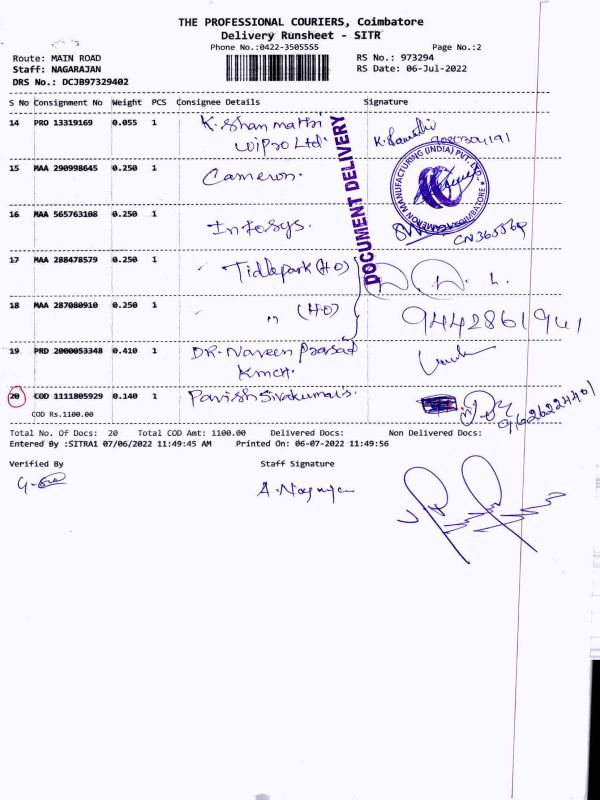 THE PROFESSIONAL COURIERS, Coimbatore
Delivery Runsheet - SITR
Phone No.:0422-3505555 Page No.:2
Route: MAIN ROAD RS No.: 973294
Staff: NAGARAJAN RS Date: 06-Jul-2022
DRS No.: DCJB97329402
S No Consignment No Weight PCS Consignee Details Signature
14 PRO 13319169 0.055 1 K. Shanmathi
Wipro Ltd.
15 MAA 290998645 0.250 1 Cameron.
CAMERON MANUFACTURING (INDIA) PVT. LTD., COIMBATORE
DOCUMENT DELIVERY
16 MAA 565763108 0.250 1 Infosys.
17 MAA 288478579 0.250 1 Tidlepark (HO)
18 MAA 287080910 0.250 1 " (HO) 9442861941
19 PRD 2000053348 0.410 1 DR. Naveen Prasad
KMCH.
20 COD 1111805929 0.140 1 Pavish Sivakumar
COD Rs.1100.00 9626224401
Total No. Of Docs: 20 Total COD Amt: 1100.00 Delivered Docs: Non Delivered Docs:
Entered By :SITRA1 07/06/2022 11:49:45 AM Printed On: 06-07-2022 11:49:56
Verified By Staff Signature